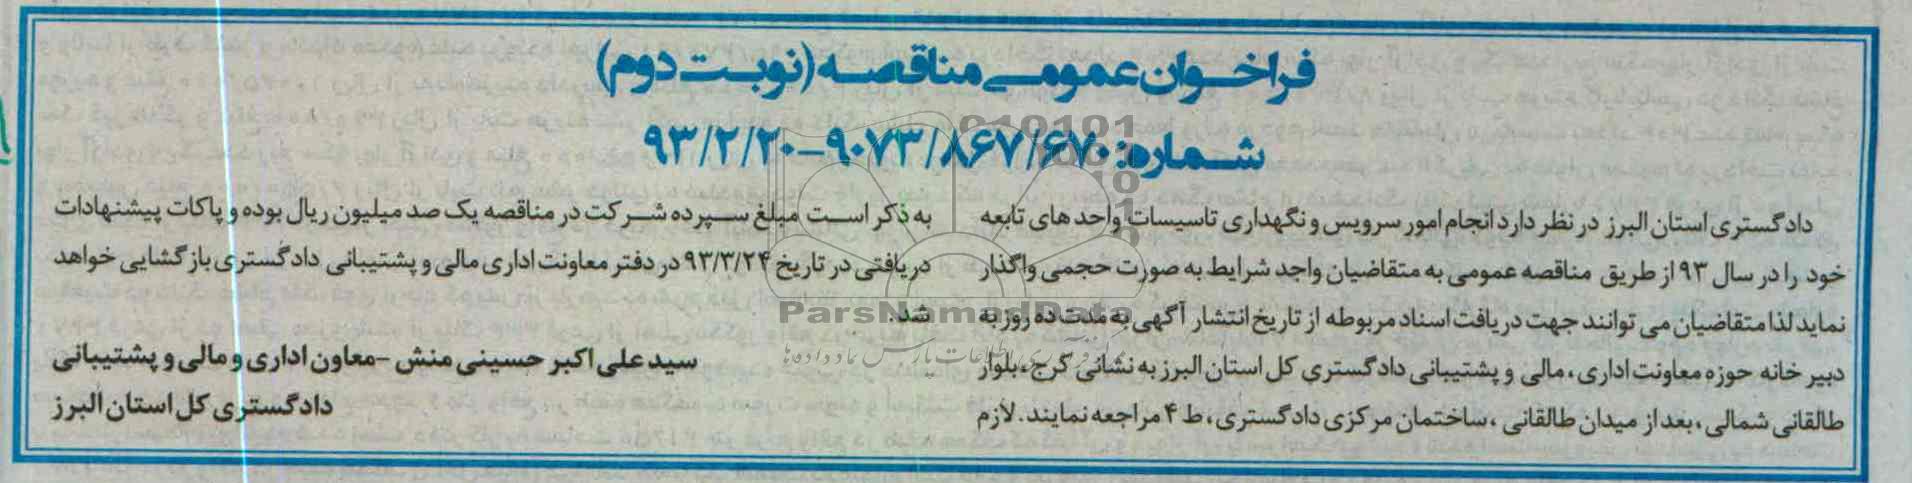 فراخوان عمومی مناقصه (نوبت دوم)
شماره: ۹۰۷۳/۸۶۷/۶۷۰-۹۳/۲/۲۰
دادگستری استان البرز در نظر دارد انجام امور سرویس و نگهداری تاسیسات واحد های تابعه
خود را در سال ۹۳ از طریق مناقصه عمومی به متقاضیان واجد شرایط به صورت حجمی واگذار
نماید لذا متقاضیان می توانند جهت دریافت اسناد مربوطه از تاریخ انتشار آگهی به مدت ده روز به
دبیر خانه حوزه معاونت اداری، مالی و پشتیبانی دادگستری کل استان البرز به نشانی کرج، بلوار
طالقانی شمالی، بعد از میدان طالقانی، ساختمان مرکزی دادگستری، ط ۴ مراجعه نمایند. لازم
به ذکر است مبلغ سپرده شرکت در مناقصه یک صد میلیون ریال بوده و پاکات پیشنهادات
دریافتی در تاریخ ۹۳/۳/۲۴ در دفتر معاونت اداری مالی و پشتیبانی دادگستری بازگشایی خواهد
شد.
سید علی اکبر حسینی منش - معاون اداری و مالی و پشتیبانی
دادگستری کل استان البرز
ParsNamadData